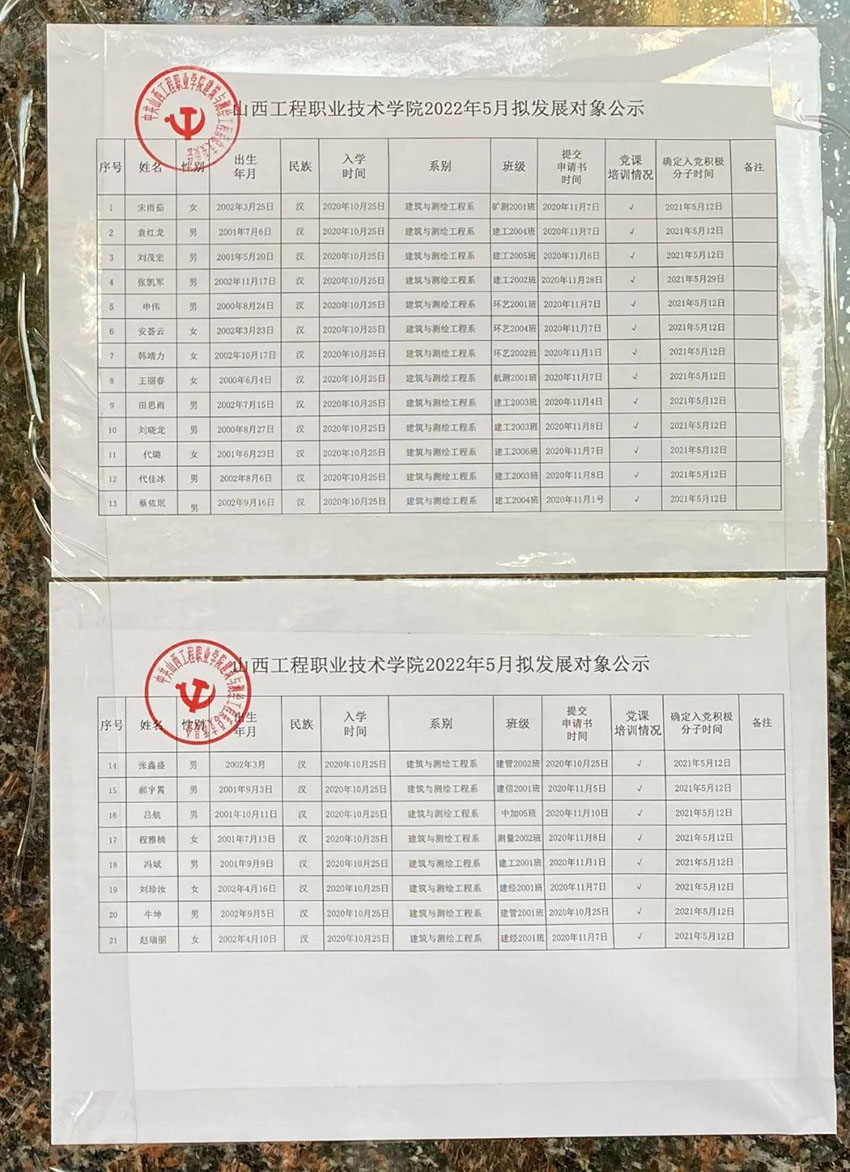 山西工程职业技术学院2022年5月拟发展对象公示
序号 姓名 性别 出生年月 民族 入学时间 系别 班级 提交申请书时间 党课培训情况 确定入党积极分子时间 备注
1 宋雨茹 女 2002年3月25日 汉 2020年10月25日 建筑与测绘工程系 矿测2001班 2020年11月7日 √ 2021年5月12日
2 袁红龙 男 2001年7月6日 汉 2020年10月25日 建筑与测绘工程系 建工2004班 2020年11月7日 √ 2021年5月12日
3 刘茂宏 男 2001年5月20日 汉 2020年10月25日 建筑与测绘工程系 建工2005班 2020年11月6日 √ 2021年5月12日
4 张凯军 男 2002年11月17日 汉 2020年10月25日 建筑与测绘工程系 建工2002班 2020年11月28日 √ 2021年5月29日
5 申伟 男 2000年8月24日 汉 2020年10月25日 建筑与测绘工程系 环艺2001班 2020年11月7日 √ 2021年5月12日
6 安荟云 女 2002年3月23日 汉 2020年10月25日 建筑与测绘工程系 环艺2004班 2020年11月7日 √ 2021年5月12日
7 韩靖力 女 2002年10月17日 汉 2020年10月25日 建筑与测绘工程系 环艺2002班 2020年11月1日 √ 2021年5月12日
8 王丽春 女 2000年6月4日 汉 2020年10月25日 建筑与测绘工程系 航测2001班 2020年11月7日 √ 2021年5月12日
9 田思雨 男 2002年7月15日 汉 2020年10月25日 建筑与测绘工程系 建工2003班 2020年11月4日 √ 2021年5月12日
10 刘晓龙 男 2000年8月27日 汉 2020年10月25日 建筑与测绘工程系 建工2003班 2020年11月8日 √ 2021年5月12日
11 代璐 女 2001年6月23日 汉 2020年10月25日 建筑与测绘工程系 建工2006班 2020年11月7日 √ 2021年5月12日
12 代佳冰 男 2002年8月6日 汉 2020年10月25日 建筑与测绘工程系 建工2003班 2020年11月8日 √ 2021年5月12日
13 蔡依珉 男 2002年9月16日 汉 2020年10月25日 建筑与测绘工程系 建工2004班 2020年11月1号 √ 2021年5月12日
山西工程职业技术学院2022年5月拟发展对象公示
序号 姓名 性别 出生年月 民族 入学时间 系别 班级 提交申请书时间 党课培训情况 确定入党积极分子时间 备注
14 张鑫盛 男 2002年3月 汉 2020年10月25日 建筑与测绘工程系 建管2002班 2020年10月25日 √ 2021年5月12日
15 郝宇霄 男 2001年9月3日 汉 2020年10月25日 建筑与测绘工程系 建信2001班 2020年11月5日 √ 2021年5月12日
16 吕航 男 2001年10月11日 汉 2020年10月25日 建筑与测绘工程系 中加05班 2020年11月10日 √ 2021年5月12日
17 程雅楠 女 2001年7月13日 汉 2020年10月25日 建筑与测绘工程系 测量2002班 2020年11月8日 √ 2021年5月12日
18 冯斌 男 2001年9月9日 汉 2020年10月25日 建筑与测绘工程系 建工2001班 2020年11月1日 √ 2021年5月12日
19 刘珍汝 女 2002年4月16日 汉 2020年10月25日 建筑与测绘工程系 建经2001班 2020年11月7日 √ 2021年5月12日
20 牛坤 男 2002年9月5日 汉 2020年10月25日 建筑与测绘工程系 建管2001班 2020年10月25日 √ 2021年5月12日
21 赵瑞丽 女 2002年4月10日 汉 2020年10月25日 建筑与测绘工程系 建经2001班 2020年11月7日 √ 2021年5月12日